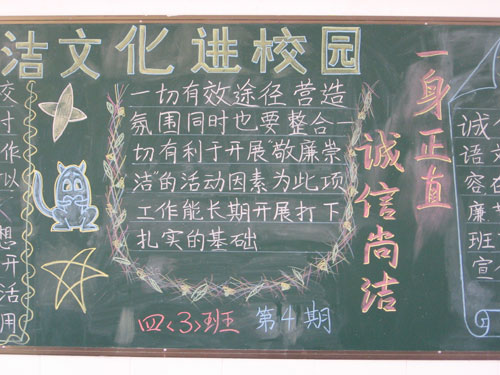 洁文化进校园
作
想
开
活
用
一切有效途径营造
氛围同时也要整合一
切有利于开展"敬廉崇
洁"的活动因素为此项
工作能长期开展打下
扎实的基础
四〈3〉班 第4期
一身正直
诚信尚洁
诚
语
容
廉
班
宣